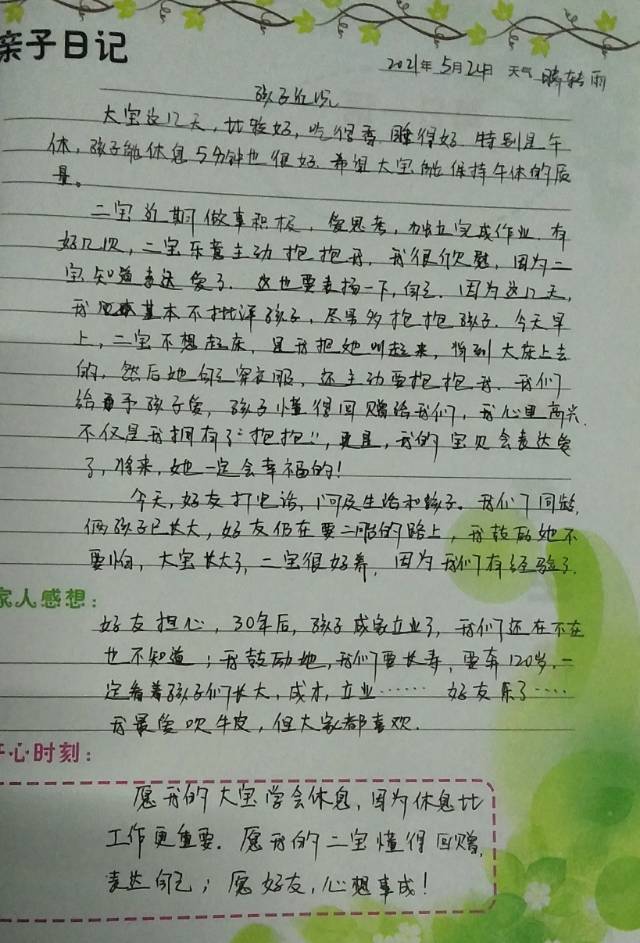 亲子日记
2021年5月24日 天气 晴转雨
孩子近况
大宝这几天，比较好，吃得香，睡得好，特别是午
休，孩子能休息5分钟也很好，希望大宝能保持午休的质
量。
二宝近期做事积极，爱思考，独立完成作业，有
好几次，二宝乐意主动抱抱我，我很欣慰，因为二
宝知道表达爱了．这也要表扬一下，自己．因为这几天，
我基本不批评孩子，尽量多抱抱孩子．今天早
上，二宝不想起床，是我把她叫起来，挪到大床上去
的，然后她自己穿衣服，还主动要抱抱我．我们
给予孩子爱，孩子懂得回赠给我们，我心里高兴．
不仅是我拥有了"抱抱"，更是，我的宝贝会表达爱
了，将来，她一定会幸福的！
今天，好友打电话，问及生活和孩子．我们几同龄，
俩孩子已长大，好友仍在要二胎的路上，我鼓励她不
要怕，大宝长大了，二宝很好养，因为我们有经验了．
家人感想：
好友担心，30年后，孩子成家立业了，我们还在不在
也不知道；我鼓励她，我们要长寿，要奔120岁，一
定看着孩子们长大，成才，立业…… 好友乐了……
我最爱吹牛皮，但大家都喜欢．
开心时刻：
愿我的大宝学会休息，因为休息比
工作更重要．愿我的二宝懂得回赠，
表达自己；愿好友，心想事成！